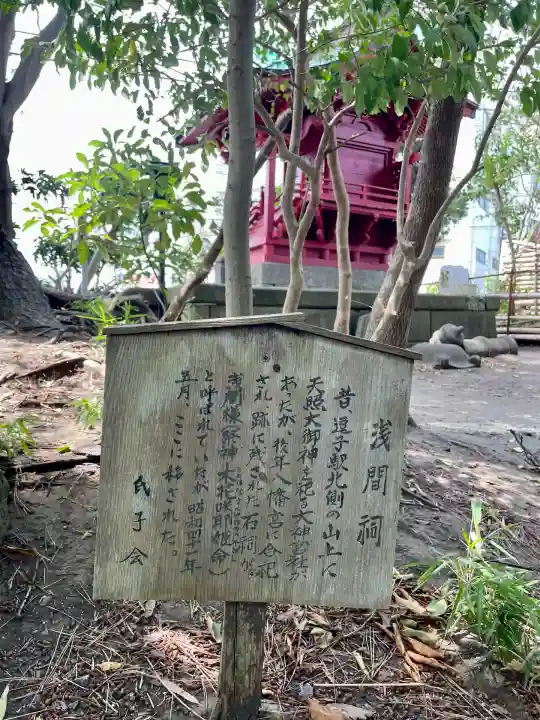 浅間祠
昔、逗子駅北側の山上に
天照大御神を祀る大神宮社が
あったが、後年八幡宮に合祀
され、跡に残された石祠が
浅間様(祭神 木花咲耶姫命)
と呼ばれていたが昭和四十一年
五月、ここに移された。
氏子会